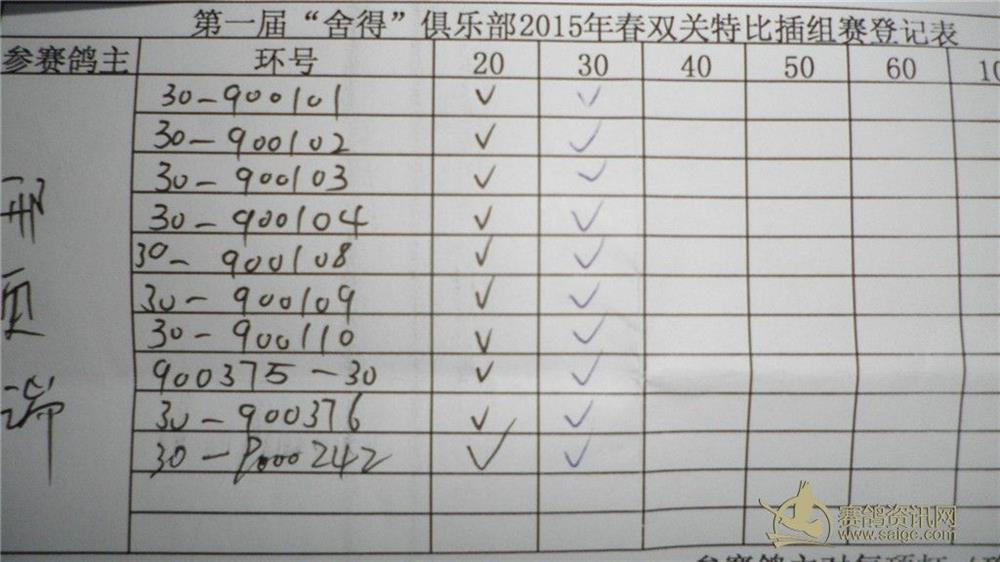 第一届“舍得”俱乐部2015年春双关特比插组赛登记表
参赛鸽主 环号 20 30 40 50 60
30-900101 ✓ ✓
30-900102 ✓ ✓
30-900103 ✓ ✓
30-900104 ✓ ✓
30-900108 ✓ ✓
30-900109 ✓ ✓
30-900110 ✓ ✓
900375-30 ✓ ✓
30-900376 ✓ ✓
✓ ✓
赛鸽资讯网
www.saige.com